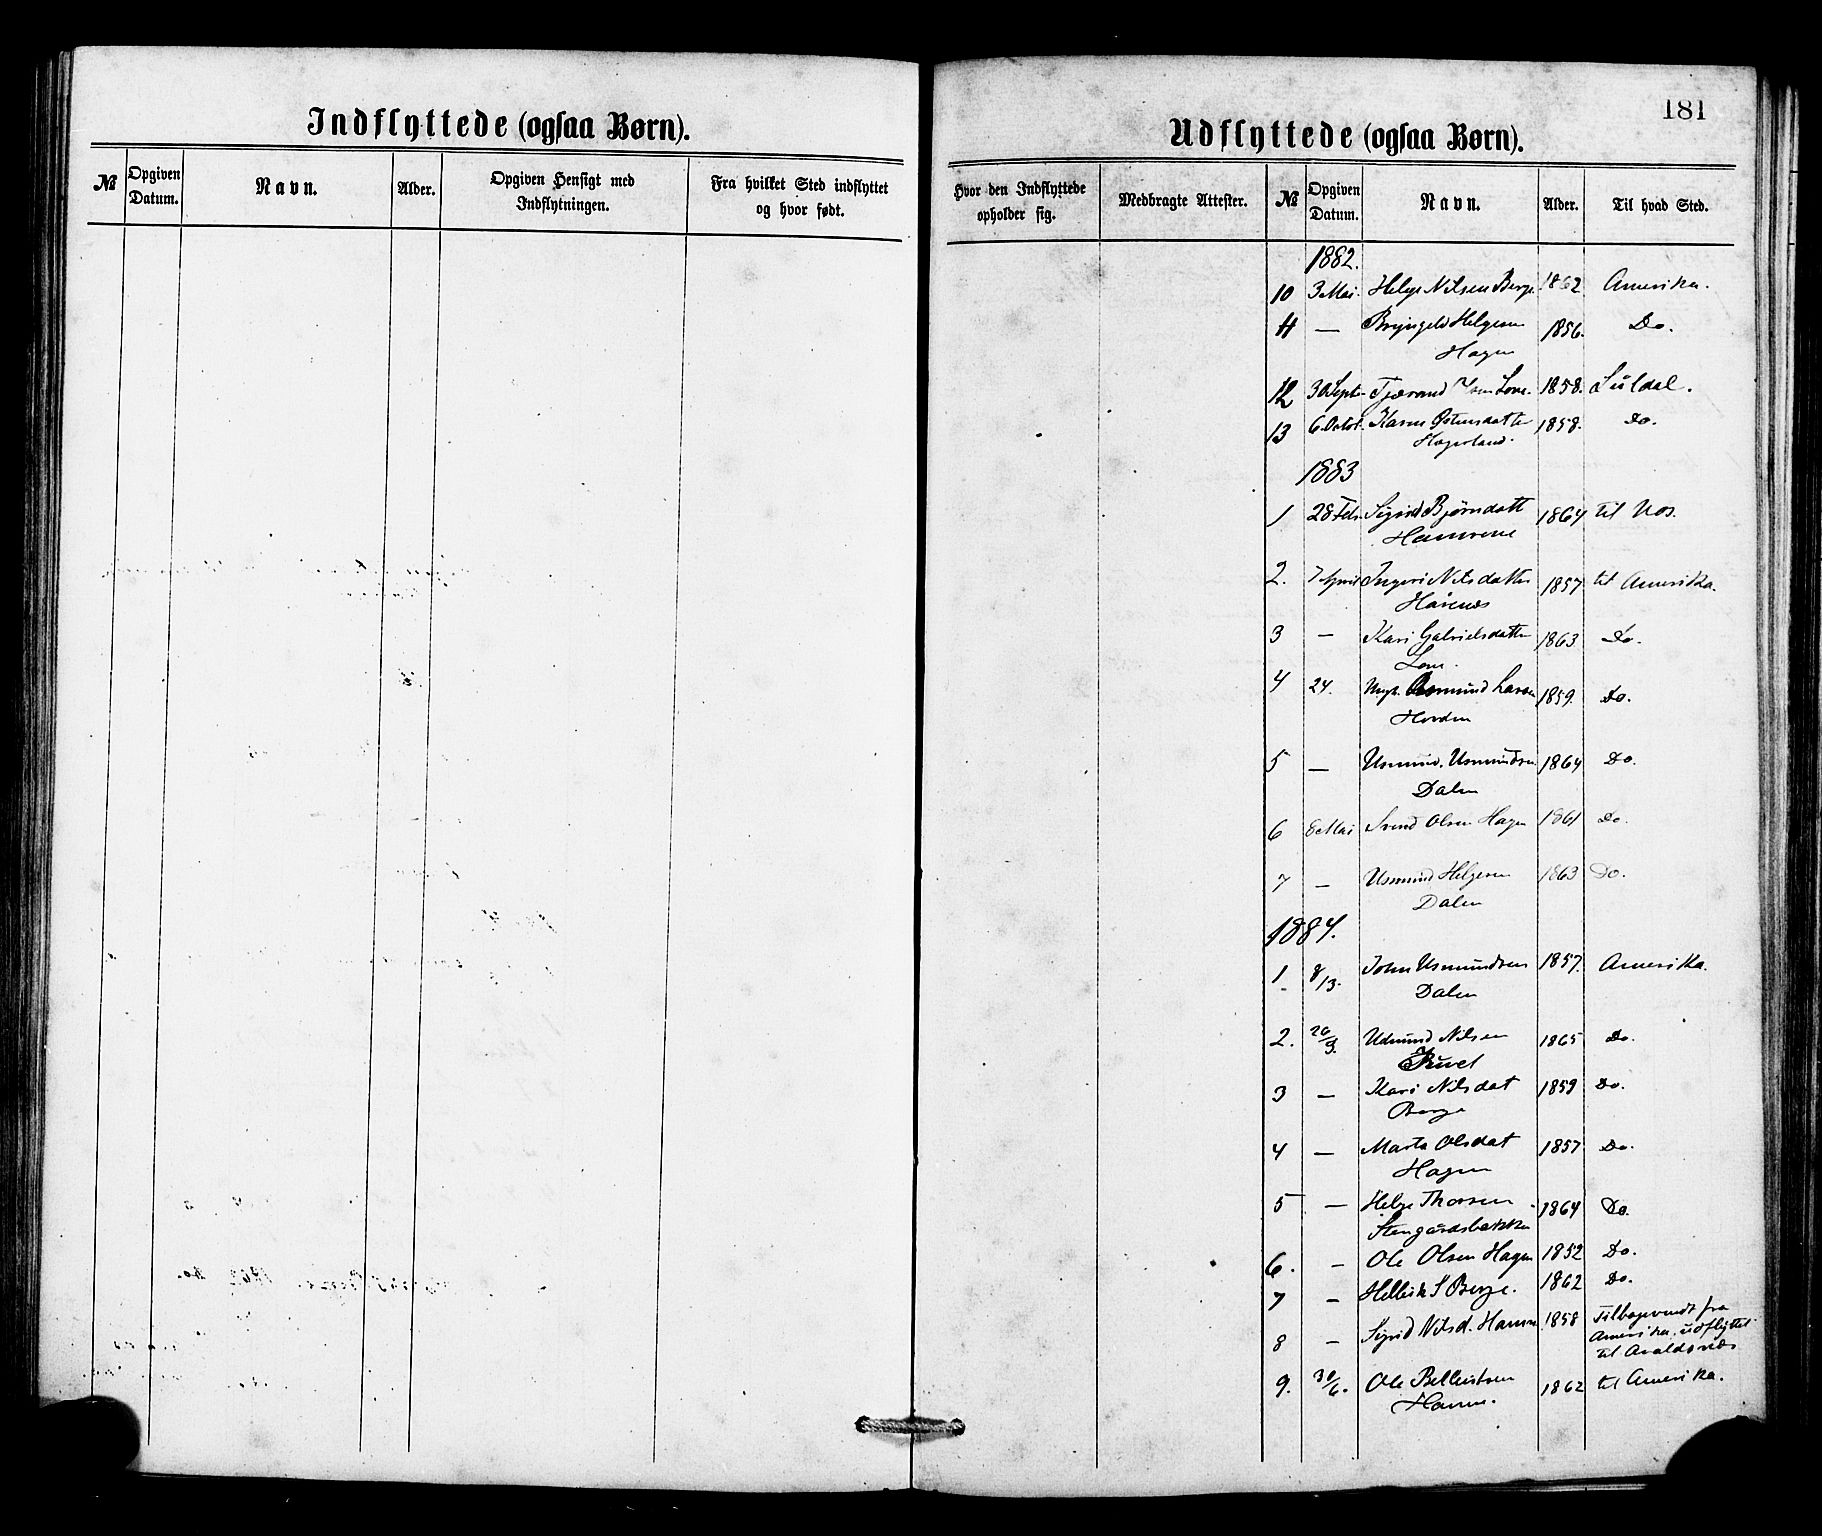 181
Indflyttede (ogsaa Børn).
№ Opgiven Datum. Navn. Alder. Opgiven Hensigt med Indflytningen. Fra hvilket Sted indflyttet og hvor født.
Udflyttede (ogsaa Børn).
Hvor den Indflyttede opholder sig. Medbragte Attester. № Opgiven Datum. Navn. Alder. Til hvad Sted.
1882.
10 3 Mai. Helge Nilsen Berge 1862 Amerika.
11 — Brynjeld Helgesen 1856. Do.
Hagen
12 30 Sept. Tjerand Lone. 1858. Suldal.
13 6. Octob. Karen Østensdatter 1858. Do.
1883
1 28 Feb. Sigrid Bjørnsdatt 1864 til Nos.
Hamrene
2. 7 April Ingeri Nilsdatter 1857 til Amerika.
3 — Kari Gabrielsdatter 1863 Do.
Lone.
4 24. Asmund Larsen 1859. Do.
Hovden
5 — Asmund Asmundsen 1864 Do.
Dalen
6 8 Mai Svend Olsen Hagen 1861 Do.
7 — Asmund Helgesen 1863 Do.
Dalen
1884.
1 8/13. John Asmundsen 1857. Amerika.
Dalen
2. 26/3. Admund Nilsen 1865 Do.
3 — Kari Nilsdat 1859 Do.
Berge
4 — Marta Olsdat 1857 Do.
Hagen
5 — Helge Thorsen 1864 Do.
Stengardsbakken
6. — Ole Olsen Hagen 1852 Do.
7 — S Berge. 1862 Do.
8 — Sigrid Nilsd. Hamre 1858 Tilbagevendt fra
Amerika, udflyttet
til Avaldsnes
9. 30/6. Ole Bellestsen 1862 til Amerika.
Hamre.